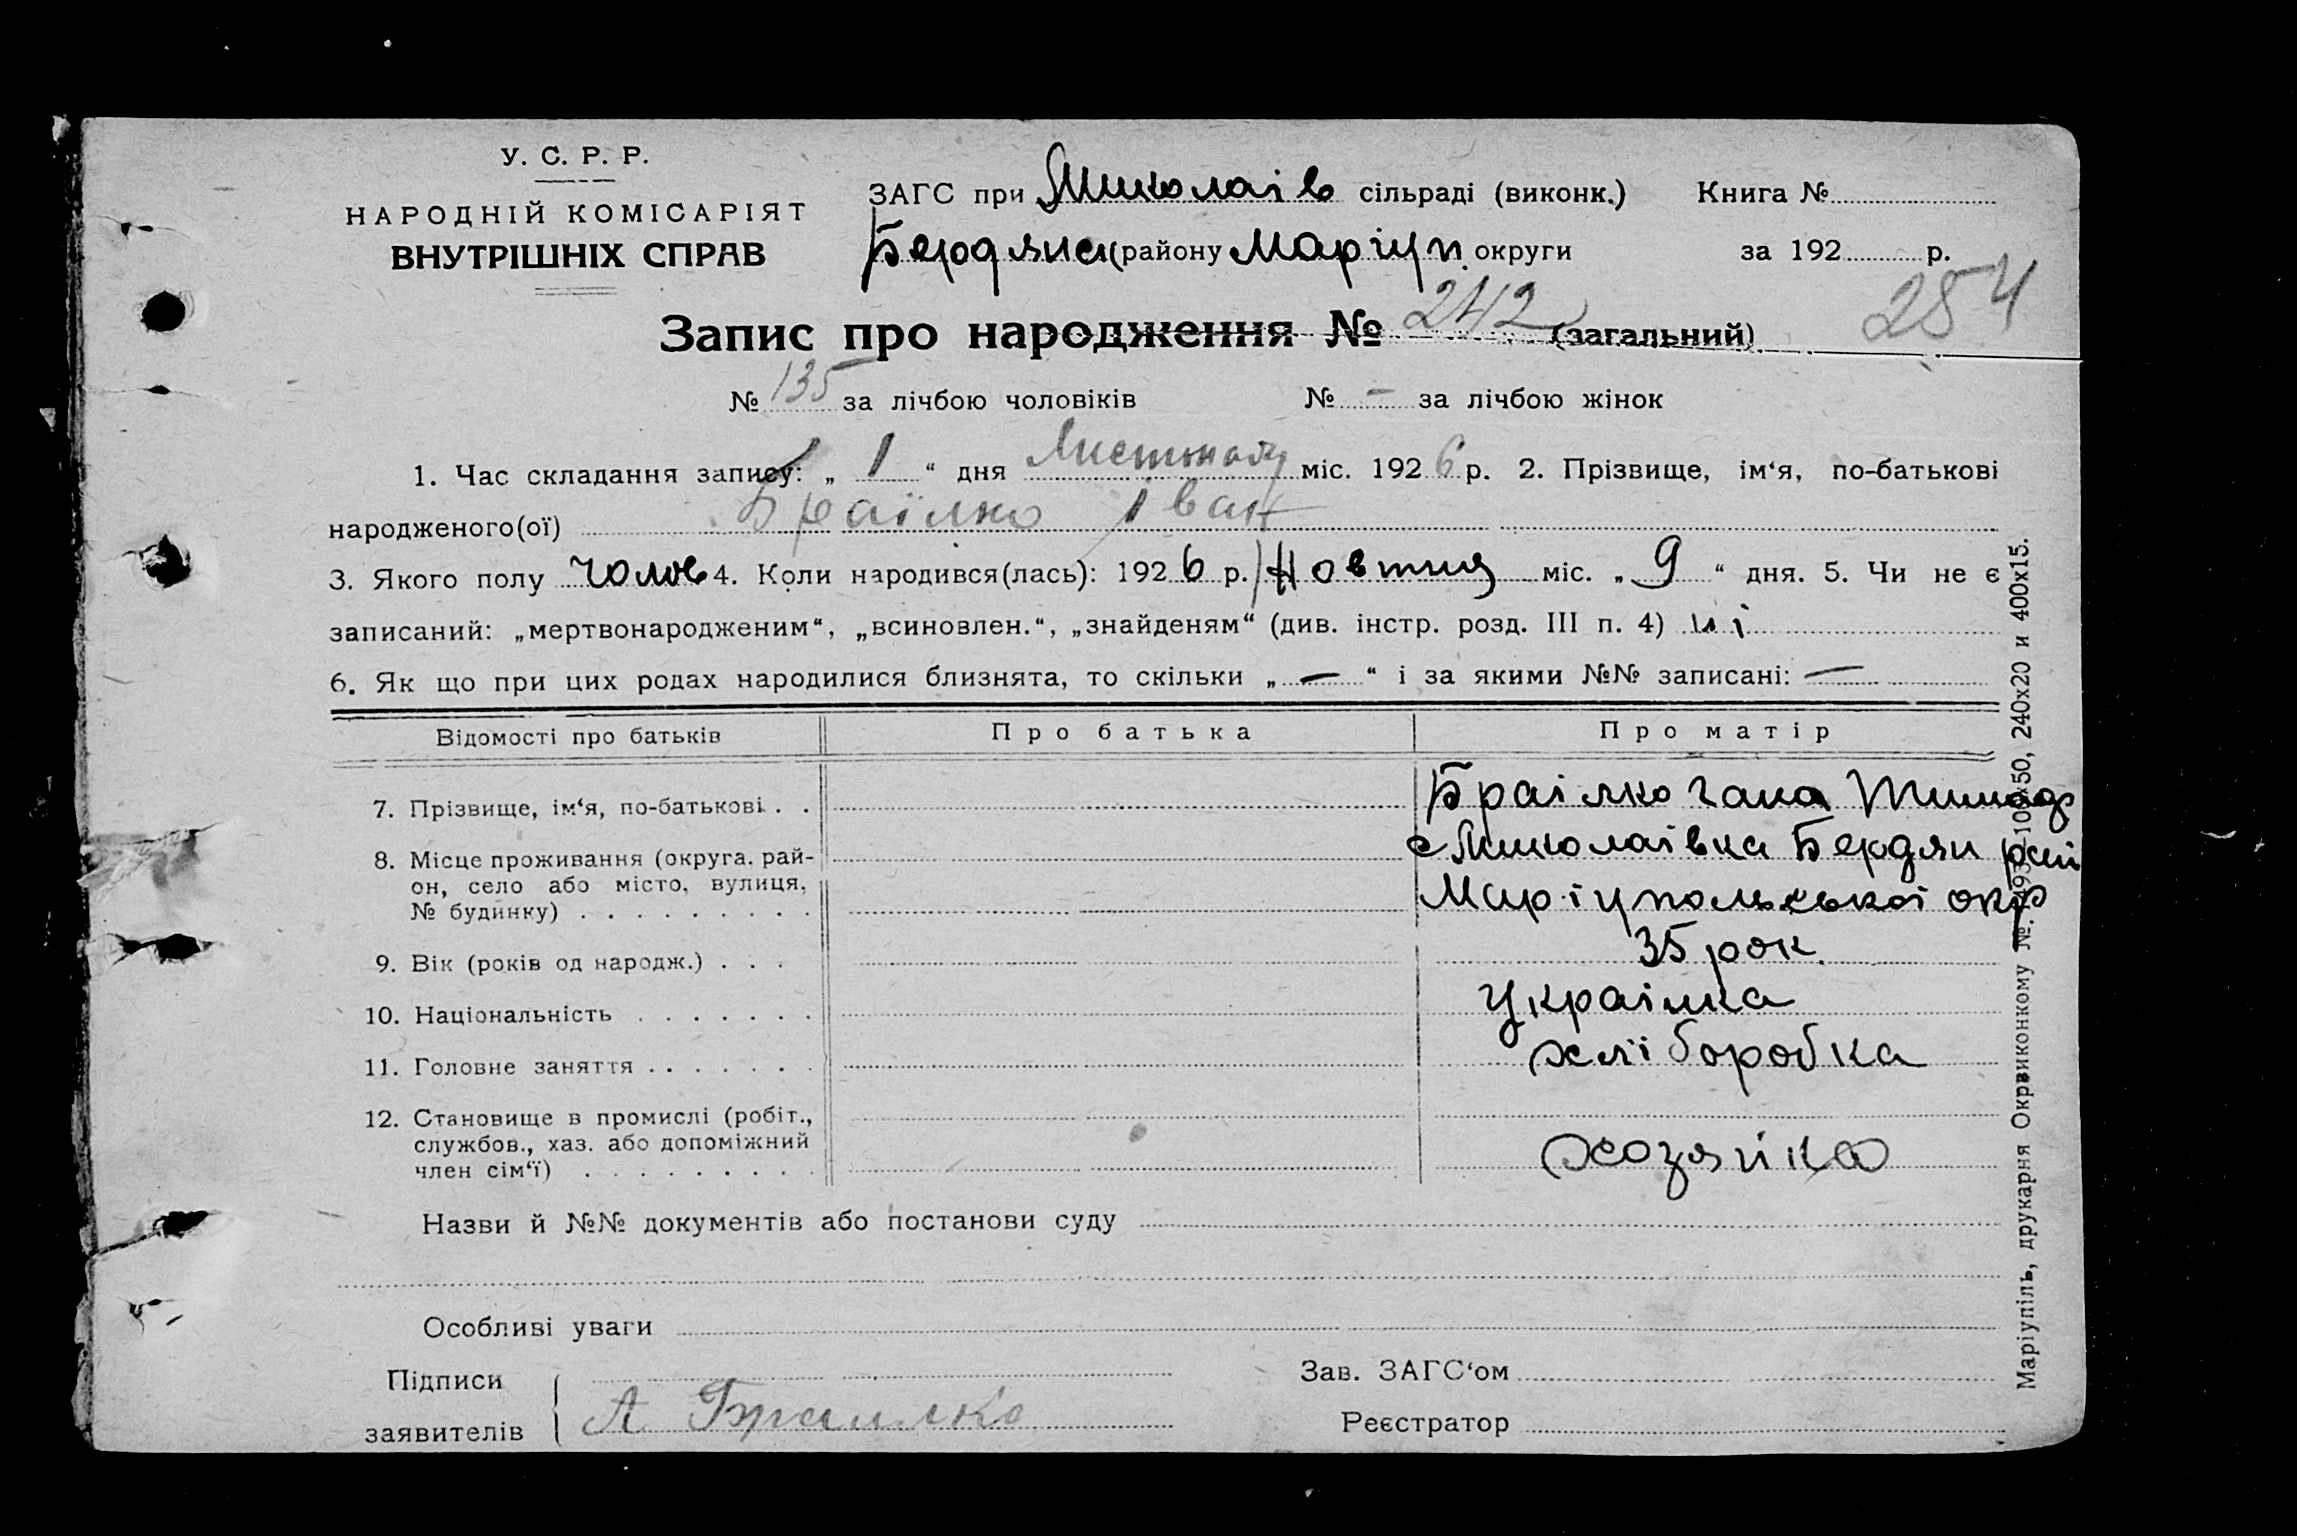 У. С. Р. Р.
НАРОДНІЙ КОМІСАРІЯТ
ВНУТРІШНІХ СПРАВ
ЗАГС при Миколаів сільраді (виконк.) Книга №
Бердянск району Маріуп. округи за 192 р.
254
Запис про народження № 242 (загальний)
№ 135 за лічбою чоловіків № – за лічбою жінок
1. Час складання запису: „ 1 “ дня Листопаду міс. 1926 р. 2. Прізвище, ім‘я, по-батькові
народженого(ої) Браїлко Іван
3. Якого полу чолов 4. Коли народився(лась): 1926 р. Жовтня міс. „ 9 “ дня. 5. Чи не є
записаний: „мертвонародженим“, „всиновлен.“, „знайденям“ (див. інстр. розд. III п. 4) ні
6. Як що при цих родах народилися близнята, то скільки „ — “ і за якими №№ записані: —
Відомості про батьків Про батька Про матір
7. Прізвище, ім‘я, по-батькові . . Браілко Гана
8. Місце проживання (округа. рай- с Миколаівка Бердян рай
он, село або місто, вулиця,
№ будинку) . . . . . . . . . Маріупольської окр
9. Вік (років од народж.) . . . 35 рок.
10. Національність . . . . . . . Украінка
11. Головне заняття . . . . . . . хліборобка
12. Становище в промислі (робіт.,
службов., хаз. або допоміжний
член сім‘ї) . . . . . . . . . хозяйка
Назви й №№ документів або постанови суду
Особливі уваги
Підписи Зав. ЗАГС‘ом
заявителів А Браилко Реєстратор
Маріупіль, друкарня Окрвиконкому №. 493—100х50, 240х20 и 400х15.